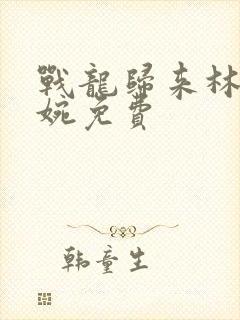 戰龍歸來林
婉免費
韩童生